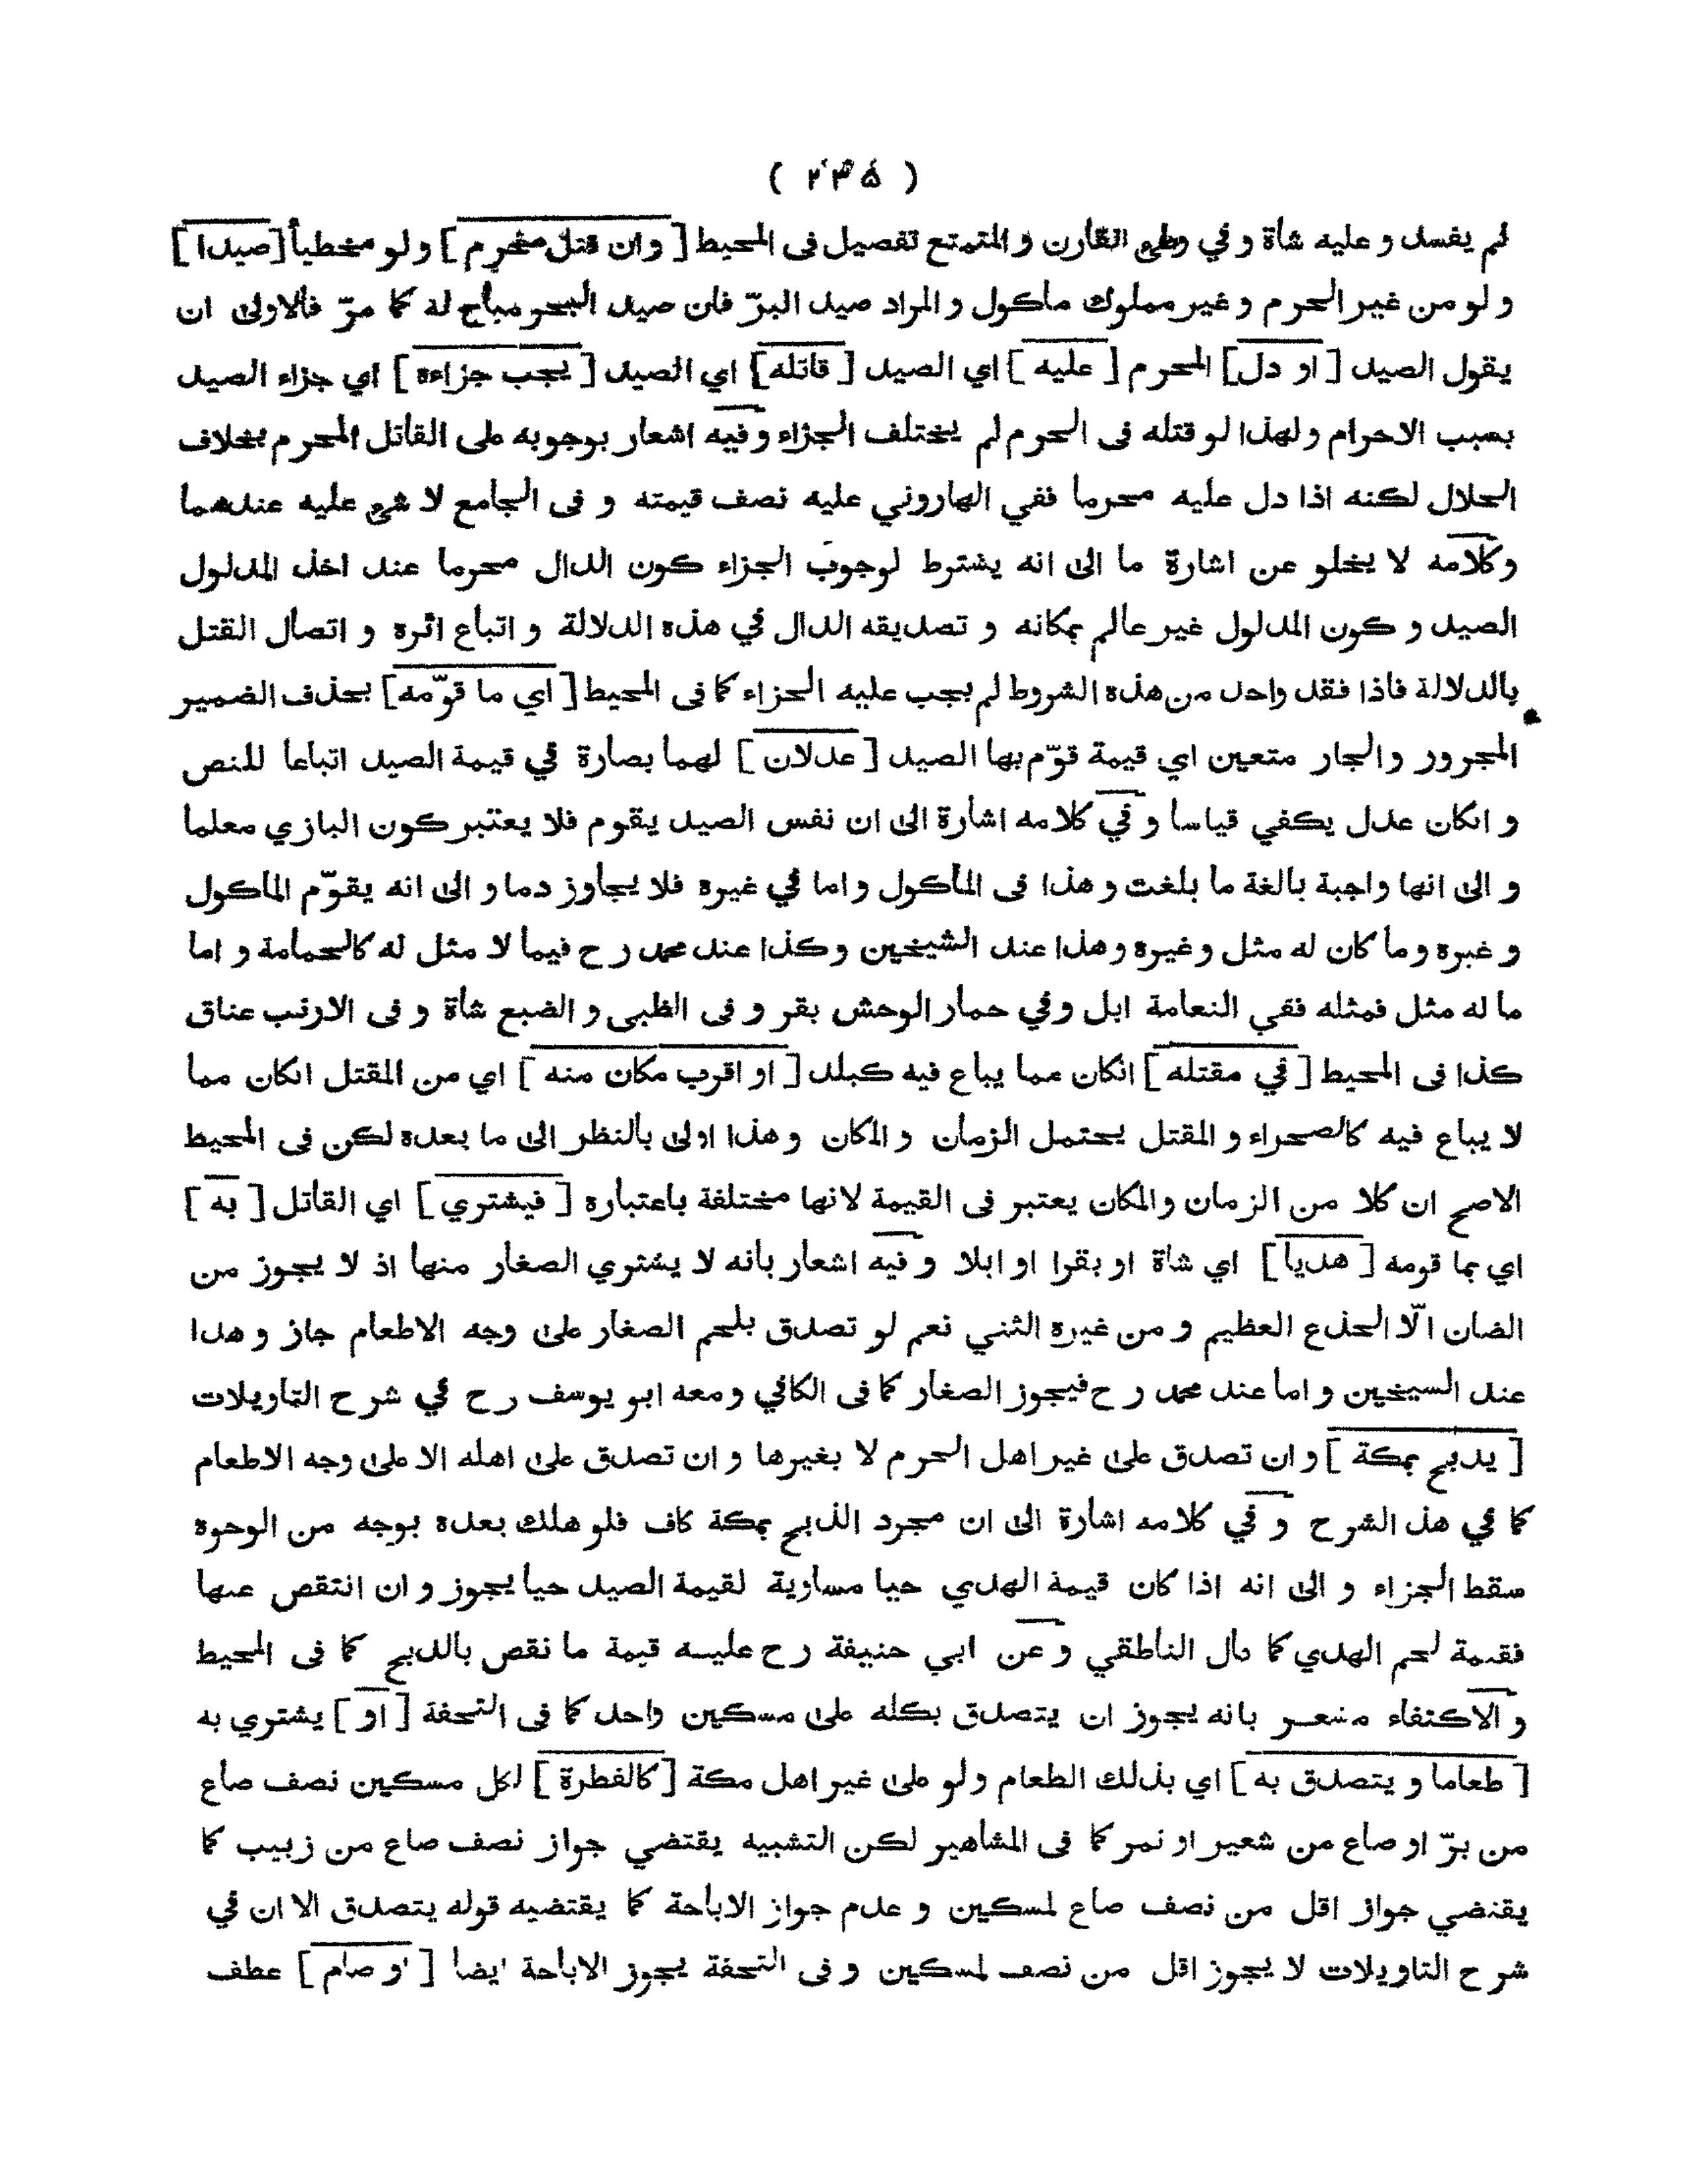 ( ٢٣۵ )
لم يفسد و عليه شاة و في وطى القارن و المتمتع تفصيل فى المحيط [ و ان قتل محرم ] و لو مخطيأ [ صيدا ]
و لو من غير الحرم و غير مملوك ماكول و المراد صيد البرّ فان صيد البحر مباح له كما مرّ فالاولى ان
يقول الصيد [ او دل ] المحرم [ عليه ] اي الصيد [ قاتله ] اي الصيد [ يجب جزاءه ] اي جزاء الصيد
بسبب الاحرام و لهذا لو قتله فى الحرم لم يختلف الجزاء و فيه اشعار بوجوبه على القاتل المحرم بخلاف
الحلال لكنه اذا دل عليه محرما ففي الهاروني عليه نصف قيمته و فى الجامع لا شئ عليه عندهما
و كلامه لا يخلو عن اشارة ما الى انه يشترط لوجوب الجزاء كون الدال محرما عند اخذ المدلول
الصيد و كون المدلول غير عالم بمكانه و تصديقه الدال في هذه الدلالة و اتباع اثره و اتصال القتل
بالدلالة فاذا فقد واحد من هذه الشروط لم يجب عليه الجزاء كما فى المحيط [ اي ما قوّمه ] بحذف الضمير
المجرور و الجار متعين اي قيمة قوّم بها الصيد [ عدلان ] لهما بصارة في قيمة الصيد اتباعا للنص
و انكان عدل يكفي قياسا و في كلامه اشارة الى ان نفس الصيد يقوم فلا يعتبر كون البازي معلما
و الى انها واجبة بالغة ما بلغت و هذا فى المأكول و اما في غيره فلا يجاوز دما و الى انه يقوّم الماكول
و غيره و ما كان له مثل و غيره و هذا عند الشيخين و كذا عند محمد رح فيما لا مثل له كالحمامة و اما
ما له مثل فمثله فقي النعامة ابل و في حمار الوحش بقر و فى الظبى و الضبع شاة و فى الارنب عناق
كذا فى المحيط [ في مقتله ] انكان مما يباع فيه كبلد [ او اقرب مكان منه ] اي من المقتل انكان مما
لا يباع فيه كالصحراء و المقتل يحتمل الزمان و المكان و هذا اولى بالنظر الى ما بعده لكن فى المحيط
الاصح ان كلا من الزمان والمكان يعتبر فى القيمة لانها مختلفة باعتباره [ فيشتري ] اي القاتل [ به ]
اي بما قومه [ هديا ] اي شاة او بقرا او ابلا و فيه اشعار بانه لا يشتري الصغار منها اذ لا يجوز من
الضان الّا الجذع العظيم و من غيره الثني نعم لو تصدق بلحم الصغار على وجه الاطعام جاز و هدا
عند السيخين و اما عند محمد رح فيجوز الصغار كما فى الكافي و معه ابو يوسف رح في شرح التاويلات
[ يدبح بمكة ] و ان تصدق على غير اهل الحرم لا بغيرها و ان تصدق على اهله الا على وجه الاطعام
كما في هذ الشرح و في كلامه اشارة الى ان مجرد الذبح بمكة كاف فلو هلك بعده بوجه من الوحوه
سقط الجزاء و الى انه اذا كان قيمة الهدي حيا مساوية لقيمة الصيد حيا يجوز و ان انتقص عنها
فقيمة لحم الهدي كما قال الناطقي و عن ابي حنيفة رح عليه قيمة ما نقص بالدبح كما فى المحيط
و الاكتفاء مشعر بانه يجوز ان يتصدق بكله على مسكين واحد كما فى التحفة [ او ] يشتري به
[ طعاما و يتصدق به ] اي بذلك الطعام و لو على غير اهل مكة [ كالفطرة ] لكل مسكين نصف صاع
من برّ او صاع من شعير او نمر كما فى المشاهير لكن التشبيه يقتضي جواز نصف صاع من زبيب كما
يقتضي جواز اقل من نصف صاع لمسكين و عدم جواز الاباحة كما يقتضيه قوله يتصدق الا ان في
شرح التاويلات لا يجوز اقل من نصف لمسكين و فى التحفة يجوز الاباحة ايضا [ او صام ] عطف